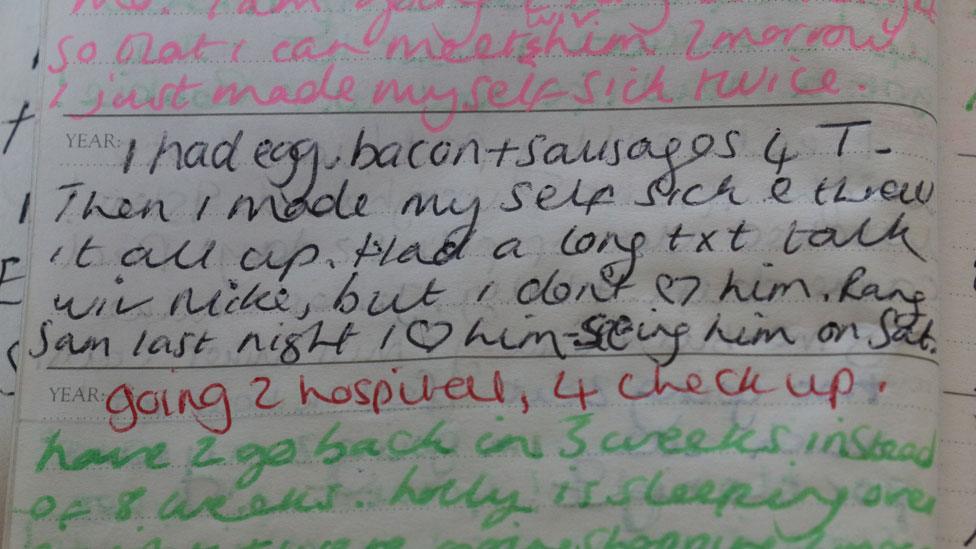 so that i can meet him 2morrow.
wiv
i just made myself sick twice.
YEAR: I had egg, bacon + sausages 4 T -
Then i made my self sick & threw
it all up. Had a long txt talk
wiv Mike, but i don't ♡ him. Rang
Sam last night I ♡ him - seeing him on Sat.
YEAR: going 2 hospitell, 4 check up.
have 2 go back in 3 weeks instead
of 8 weeks. holly is sleeping over